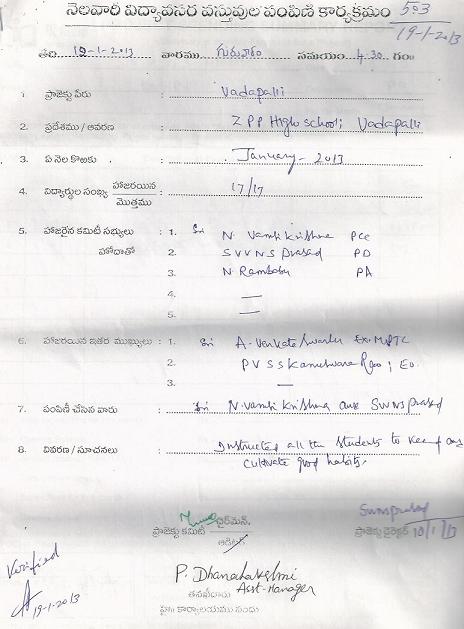 నెలవారి విద్యావసర వస్తువుల పంపిణి కార్యక్రమం
19-1-2013
తేది 19-1-2013 వారము గురువారం సమయం 4-30 గం॥
1. ప్రాజెక్టు పేరు : Vadapalli
2. ప్రదేశము / ఆవరణ : Z P P High school; Vadapalli
3. ఏ నెల కొఱకు : January - 2013
4. విద్యార్థుల సంఖ్య హాజరయిన : 17/17
మొత్తము
5. హాజరైన కమిటీ సభ్యులు : 1. Sri N. Vamsi Krishna PCC
హోదాతో 2. S V V N S Prasad PD
3. N Rambabu PA
4. —
5. —
6. హాజరయిన ఇతర ముఖ్యులు : 1. Sri A. Venkateswarlu Ex. MPTC
2. P V S S Kameswara Rao ; Eo.
3. —
7. పంపిణీ చేసిన వారు : Sri N. Vamsi Krishna and SVVNS Prasad
8. వివరణ / సూచనలు : Instructed all the students to keep and
cultivate good habits.
ప్రాజెక్టు కమిటీ ఛైర్మెన్.
ఆడిటర్
Svvnsprasad
ప్రాజెక్టు డైరెక్టర్ 10/1/13
P. Dhanalakshmi
Asst-Manager
తనిఖీదారు
హైః కార్యాలయము నందు
Verified
19-1-2013